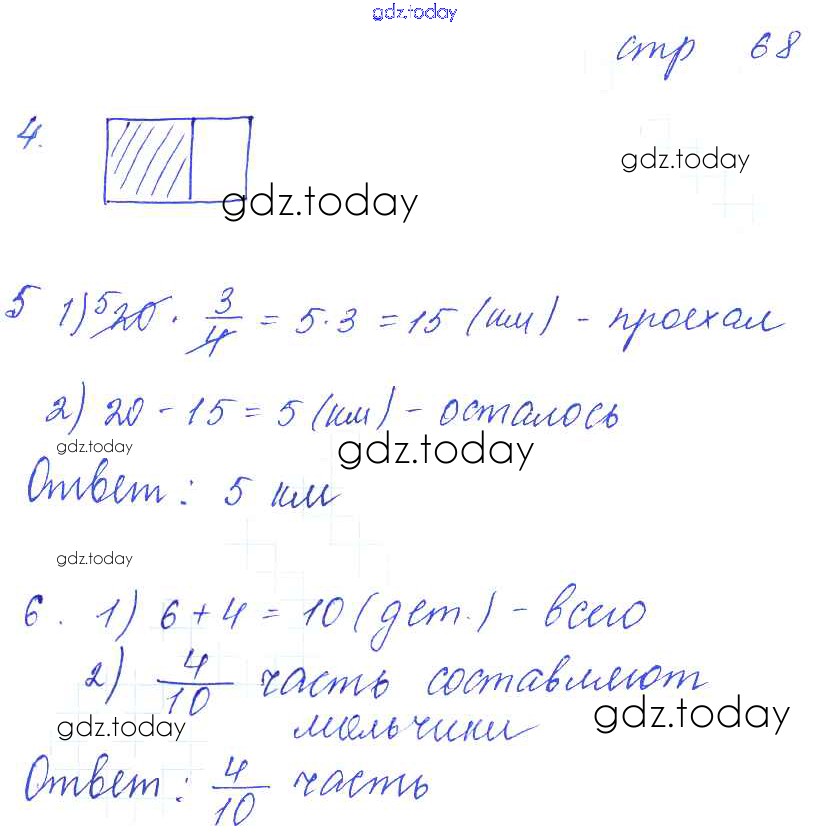 gdz.today
стр 68
4.
gdz.today
gdz.today
5 1) 5 20 · 3/4 = 5·3 = 15 (км) - проехал
2) 20 - 15 = 5 (км) - осталось
gdz.today
gdz.today
Ответ: 5 км
gdz.today
6. 1) 6 + 4 = 10 (дет.) - всего
2) 4/10 часть составляют
мальчики
gdz.today
gdz.today
Ответ: 4/10 часть